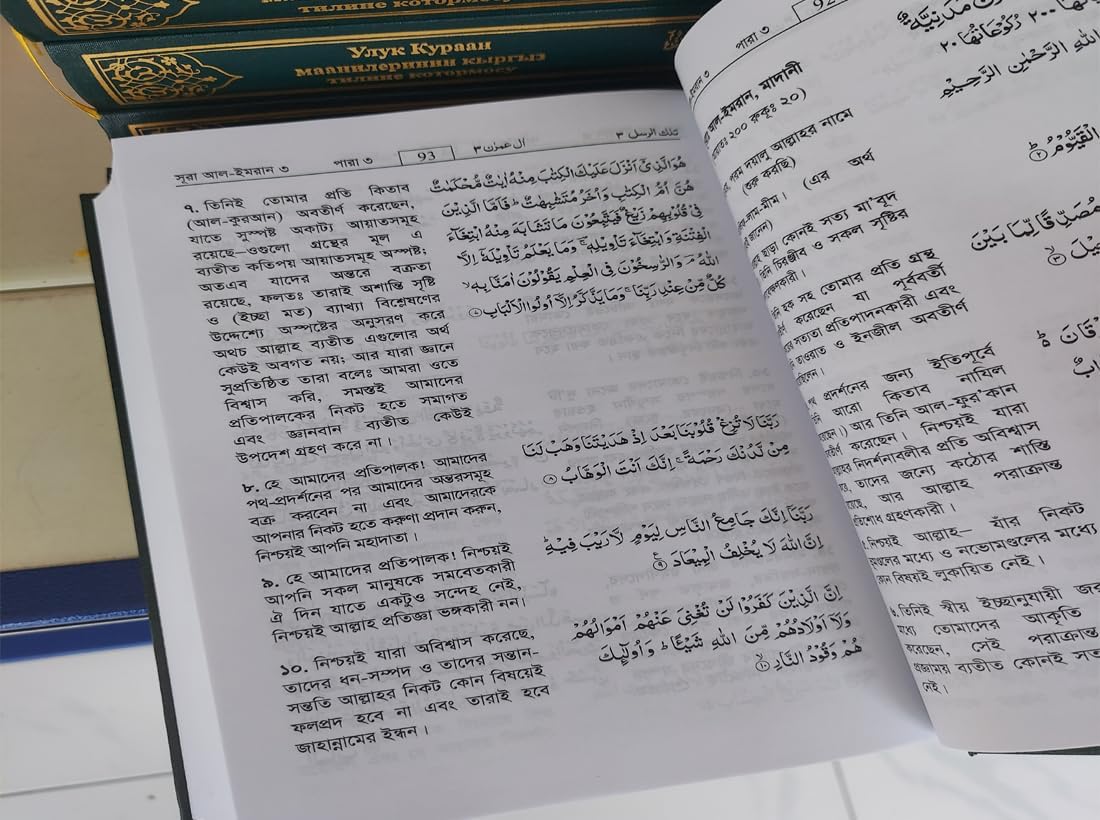 тилине котормосу
Улук Кураан
маанилеринин кыргыз
тилине котормосу
সূরা আল-ইমরান ৩
পারা ৩
93
اٰل عمرٰن ٣
تلك الرسل ٣
৭. তিনিই তোমার প্রতি কিতাব
(আল-কুরআন) অবতীর্ণ করেছেন,
যাতে সুস্পষ্ট অকাট্য আয়াতসমূহ
রয়েছে—ওগুলো গ্রন্থের মূল এ
ব্যতীত কতিপয় আয়াতসমূহ অস্পষ্ট;
অতএব যাদের অন্তরে বক্রতা
রয়েছে, ফলতঃ তারাই অশান্তি সৃষ্টি
ও (ইচ্ছা মত) ব্যাখ্যা বিশ্লেষণের
উদ্দেশ্যে অস্পষ্টের অনুসরণ করে
অথচ আল্লাহ ব্যতীত এগুলোর অর্থ
কেউই অবগত নয়; আর যারা জ্ঞানে
সুপ্রতিষ্ঠিত তারা বলেঃ আমরা ওতে
বিশ্বাস করি, সমস্তই আমাদের
প্রতিপালকের নিকট হতে সমাগত
এবং জ্ঞানবান ব্যতীত কেউই
উপদেশ গ্রহণ করে না।
৮. হে আমাদের প্রতিপালক! আমাদের
পথ-প্রদর্শনের পর আমাদের অন্তরসমূহ
বক্র করবেন না এবং আমাদেরকে
আপনার নিকট হতে করুণা প্রদান করুন,
নিশ্চয়ই আপনি মহাদাতা।
৯. হে আমাদের প্রতিপালক! নিশ্চয়ই
আপনি সকল মানুষকে সমবেতকারী
ঐ দিন যাতে একটুও সন্দেহ নেই,
নিশ্চয়ই আল্লাহ প্রতিজ্ঞা ভঙ্গকারী নন।
১০. নিশ্চয়ই যারা অবিশ্বাস করেছে,
তাদের ধন-সম্পদ ও তাদের সন্তান-
সন্ততি আল্লাহর নিকট কোন বিষয়েই
ফলপ্রদ হবে না এবং তারাই হবে
জাহান্নামের ইন্ধন।
هُوَ الَّذِیْۤ اَنْزَلَ عَلَیْكَ الْكِتٰبَ مِنْهُ اٰیٰتٌ مُّحْكَمٰتٌ
هُنَّ اُمُّ الْكِتٰبِ وَاُخَرُ مُتَشٰبِهٰتٌ ؕ فَاَمَّا الَّذِیْنَ
فِیْ قُلُوْبِهِمْ زَیْغٌ فَیَتَّبِعُوْنَ مَا تَشَابَهَ مِنْهُ ابْتِغَآءَ
الْفِتْنَةِ وَابْتِغَآءَ تَاْوِیْلِهٖ ۚ وَمَا یَعْلَمُ تَاْوِیْلَهٗۤ اِلَّا
اللهُ ۘ وَالرّٰسِخُوْنَ فِی الْعِلْمِ یَقُوْلُوْنَ اٰمَنَّا بِهٖ ۙ
كُلٌّ مِّنْ عِنْدِ رَبِّنَا ۚ وَمَا یَذَّكَّرُ اِلَّاۤ اُولُوا الْاَلْبَابِ
رَبَّنَا لَا تُزِغْ قُلُوْبَنَا بَعْدَ اِذْ هَدَیْتَنَا وَهَبْ لَنَا
مِنْ لَّدُنْكَ رَحْمَةً ۚ اِنَّكَ اَنْتَ الْوَهَّابُ ۝٨
رَبَّنَاۤ اِنَّكَ جَامِعُ النَّاسِ لِیَوْمٍ لَّا رَیْبَ فِیْهِ ؕ
اِنَّ اللهَ لَا یُخْلِفُ الْمِیْعَادَ ۝٩
اِنَّ الَّذِیْنَ كَفَرُوْا لَنْ تُغْنِیَ عَنْهُمْ اَمْوَالُهُمْ
وَلَاۤ اَوْلَادُهُمْ مِّنَ اللهِ شَیْئًا ؕ وَاُولٰٓئِكَ
هُمْ وَقُوْدُ النَّارِ ۝١٠
পারা ৩
92
আল-ইমরান, মাদানী
২০০ রুকূঃ ২০)
পরম দয়ালু আল্লাহর নামে
(শুরু করছি)
(এর অর্থ
জানেন)
ছাড়া কোনই সত্য মা'বুদ
চিরঞ্জীব ও সকল সৃষ্টির
হক সহ তোমার প্রতি গ্রন্থ
করেছেন যা পূর্ববর্তী
সত্যতা প্রতিপাদনকারী এবং
তাওরাত ও ইনজীল অবতীর্ণ
প্রদর্শনের জন্য ইতিপূর্বে
আরো কিতাব নাযিল
আর তিনি আল-ফুরকান
করেছেন। নিশ্চয়ই যারা
নিদর্শনাবলীর প্রতি অবিশ্বাস
তাদের জন্যে কঠোর শাস্তি
আর আল্লাহ পরাক্রান্ত
নিশ্চয়ই আল্লাহ– যাঁর নিকট
মধ্যে ও নভোমণ্ডলের মধ্যে
বিষয়ই লুকায়িত নেই।
তিনিই স্বীয় ইচ্ছানুযায়ী
মধ্যে তোমাদের আকৃতি
করেছেন, সেই পরাক্রান্ত
ব্যতীত কোনই
নেই।
مَدَنِیَّةٌ
٢٠٠ رُكُوْعَاتُهَا ٢٠
اللهِ الرَّحْمٰنِ الرَّحِیْمِ
الْقَیُّوْمُ ۝٢
مُصَدِّقًا لِّمَا بَیْنَ